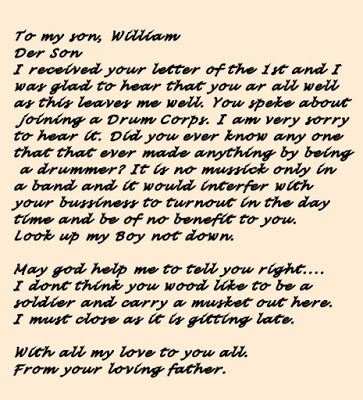 To my son, William
Der Son
I received your letter of the 1st and I
was glad to hear that you ar all well
as this leaves me well. You speke about
joining a Drum Corps. I am very sorry
to hear it. Did you ever know any one
that that ever made anything by being
a drummer? It is no mussick only in
a band and it would interfer with
your bussiness to turnout in the day
time and be of no benefit to you.
Look up my Boy not down.

May god help me to tell you right....
I dont think you wood like to be a
soldier and carry a musket out here.
I must close as it is gitting late.

With all my love to you all.
From your loving father.